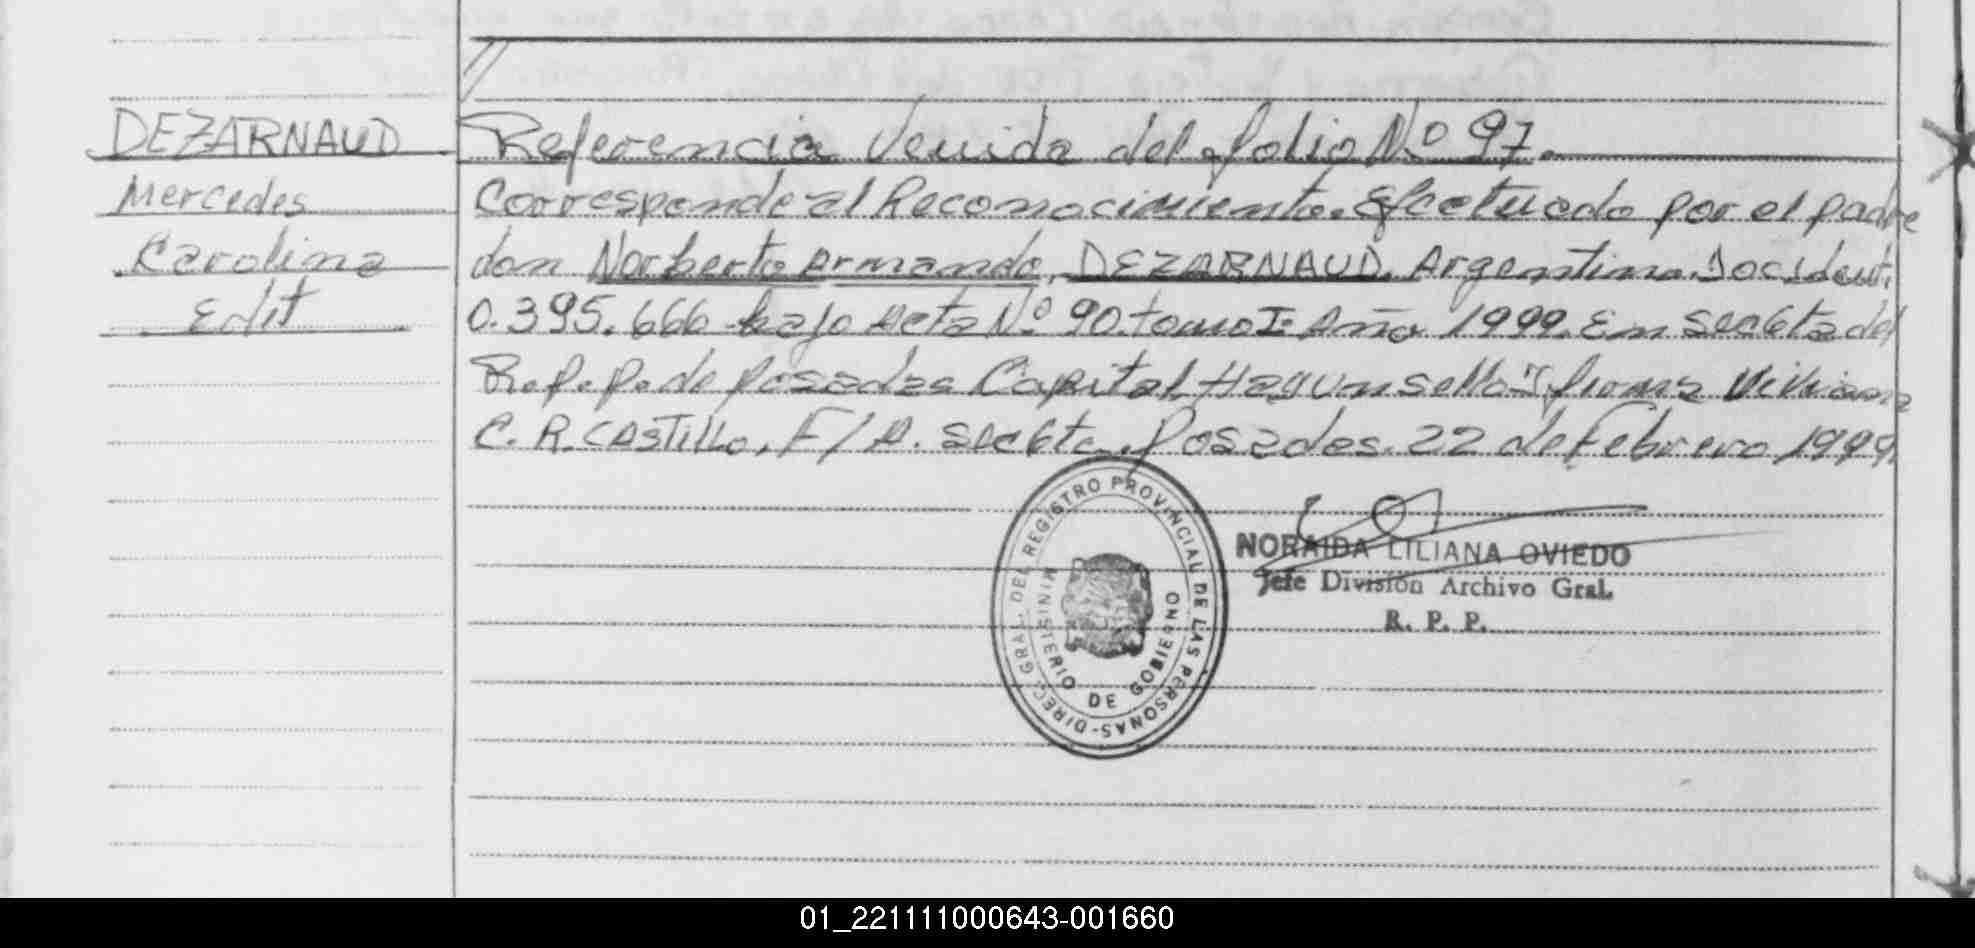 //
DEZARNAUD
Mercedes
Carolina
Edit
Referencia Venida del folio Nº 97.
Corresponde al Reconocimiento. Efectuado por el padre
don Norberto Armando, DEZARNAUD. Argentino. Doc. Ident.
0.395.666 bajo Acta Nº 90. tomo I. Año 1999. En Seccta del
R.P.P. de Posadas Capital Hay un sello y firma Viviana
C. R. CASTILLO, F/A. Seccta. Posadas. 22 de Febrero 1999
DIREC. GRAL. DEL REGISTRO PROVINCIAL DE LAS PERSONAS-
MINISTERIO DE GOBIERNO
NORAIDA LILIANA OVIEDO
Jefe División Archivo Gral.
R. P. P.
01_221111000643-001660